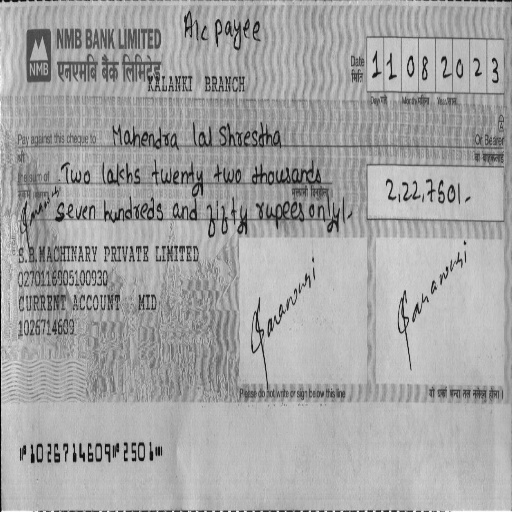 A/c payee
NMB BANK LIMITED
एनएमबि बैंक लिमिटेड
KALANKI BRANCH
NMB
Date 11082023
मिति
Pay against this cheque to Mahendra lal Shrestha Or Bearer
श्री
the sum of Two lakhs twenty two thousands
seven hundreds and fifty rupees only/.
2,22,750/-
S.B.MACHINARY PRIVATE LIMITED
0270116905100930
CURRENT ACCOUNT MID
1026714609
Please do not write or sign below this line
⑈1026714609⑈2501⑈